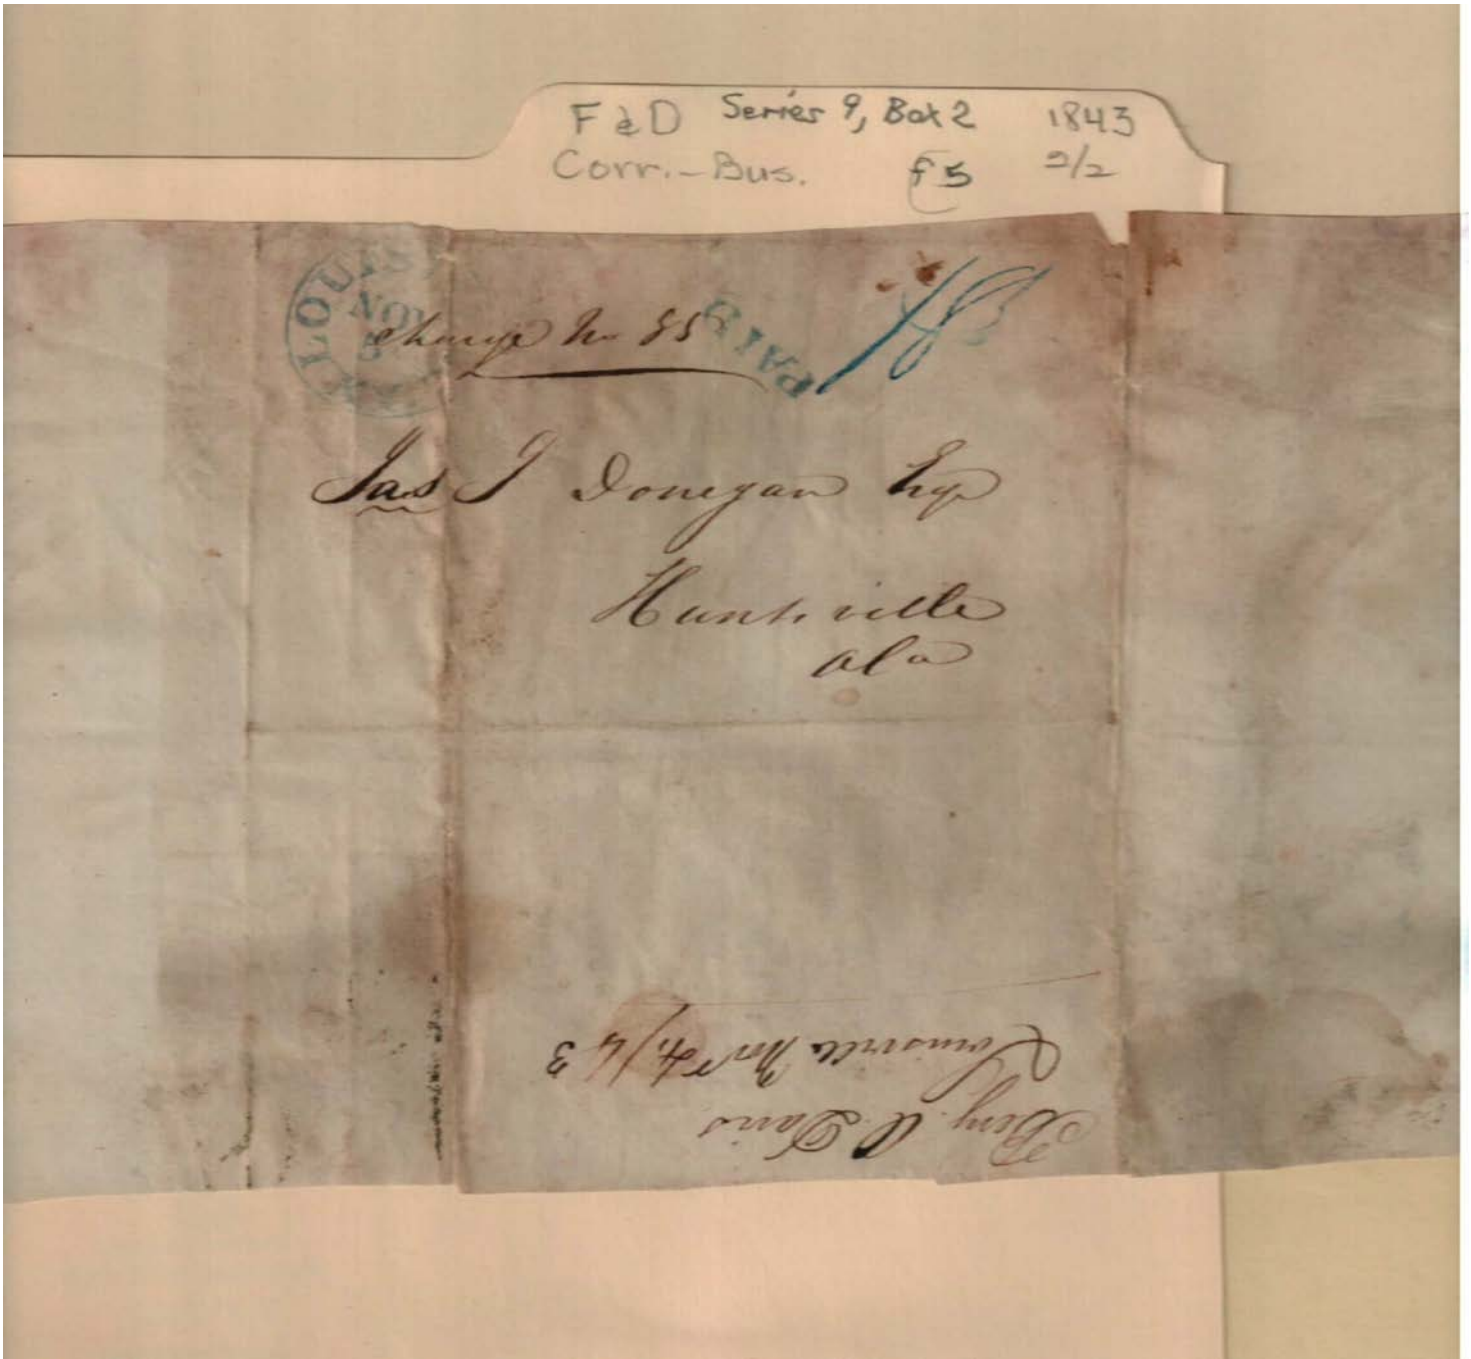 F & D Series 9, Box 2 1843
Corr.-Bus. f5 2/2
LOUIS
NOV
5
KY
charge No 85
PAID
Jas J Donegan Esqr
Huntsville
Ala
Benj. A. Davis
Louisville Nov 4/43